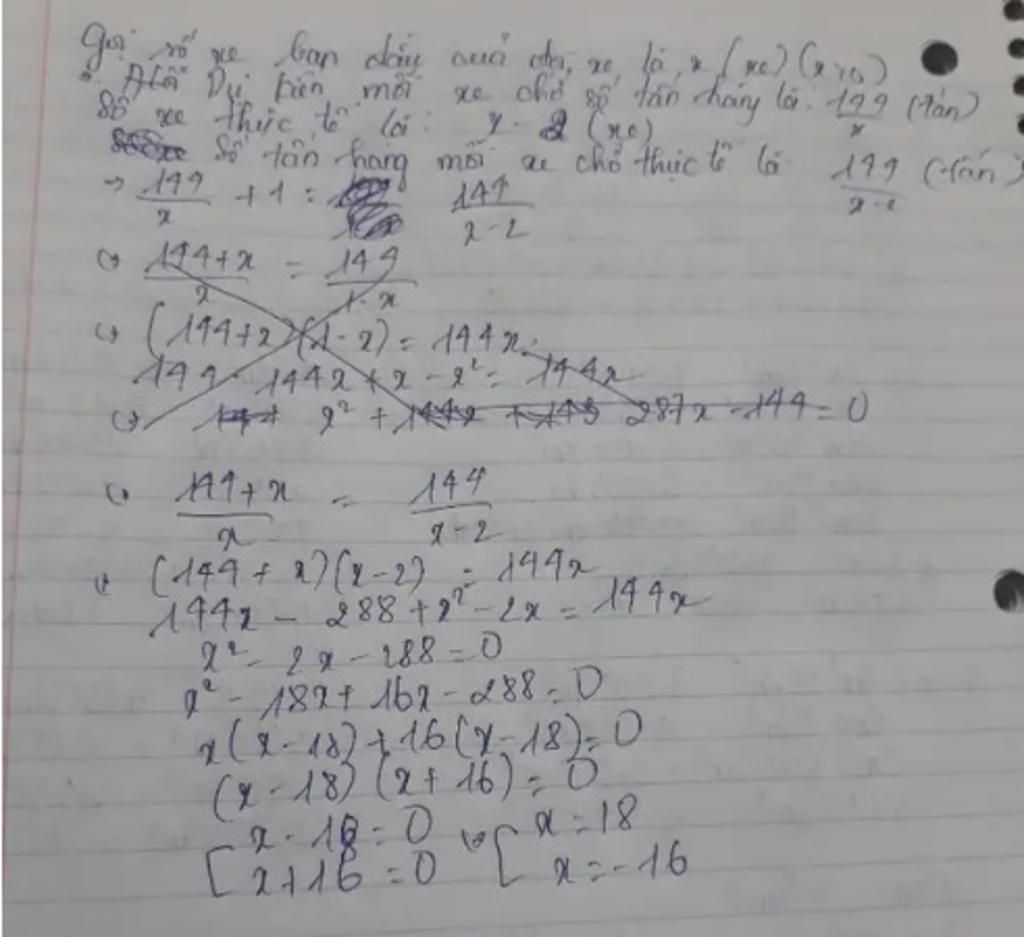 Gọi số xe ban đầu của đội xe là x (xe) (x>0)
Dự kiến mỗi xe chở số tấn hàng là: 144/x (tấn)
Số xe thực tế là: x - 2 (xe)
Số tấn hàng mỗi xe chở thực tế là 144/x-2 (tấn)
→ 144/x + 1 = 144/x-2
(=) 144+x/x = 144/1-x
(=) (144+x)(1-x) = 144x
144 - 144x + x - x² = 144x
(=) x² + 287x - 144 = 0
(=) 144+x/x = 144/x-2
(=) (144+x)(x-2) = 144x
144x - 288 + x² - 2x = 144x
x² - 2x - 288 = 0
x² - 18x + 16x - 288 = 0
x(x-18) + 16(x-18) = 0
(x-18) (x+16) = 0
[x - 18 = 0 (=) [x = 18
[x + 16 = 0 [x = -16